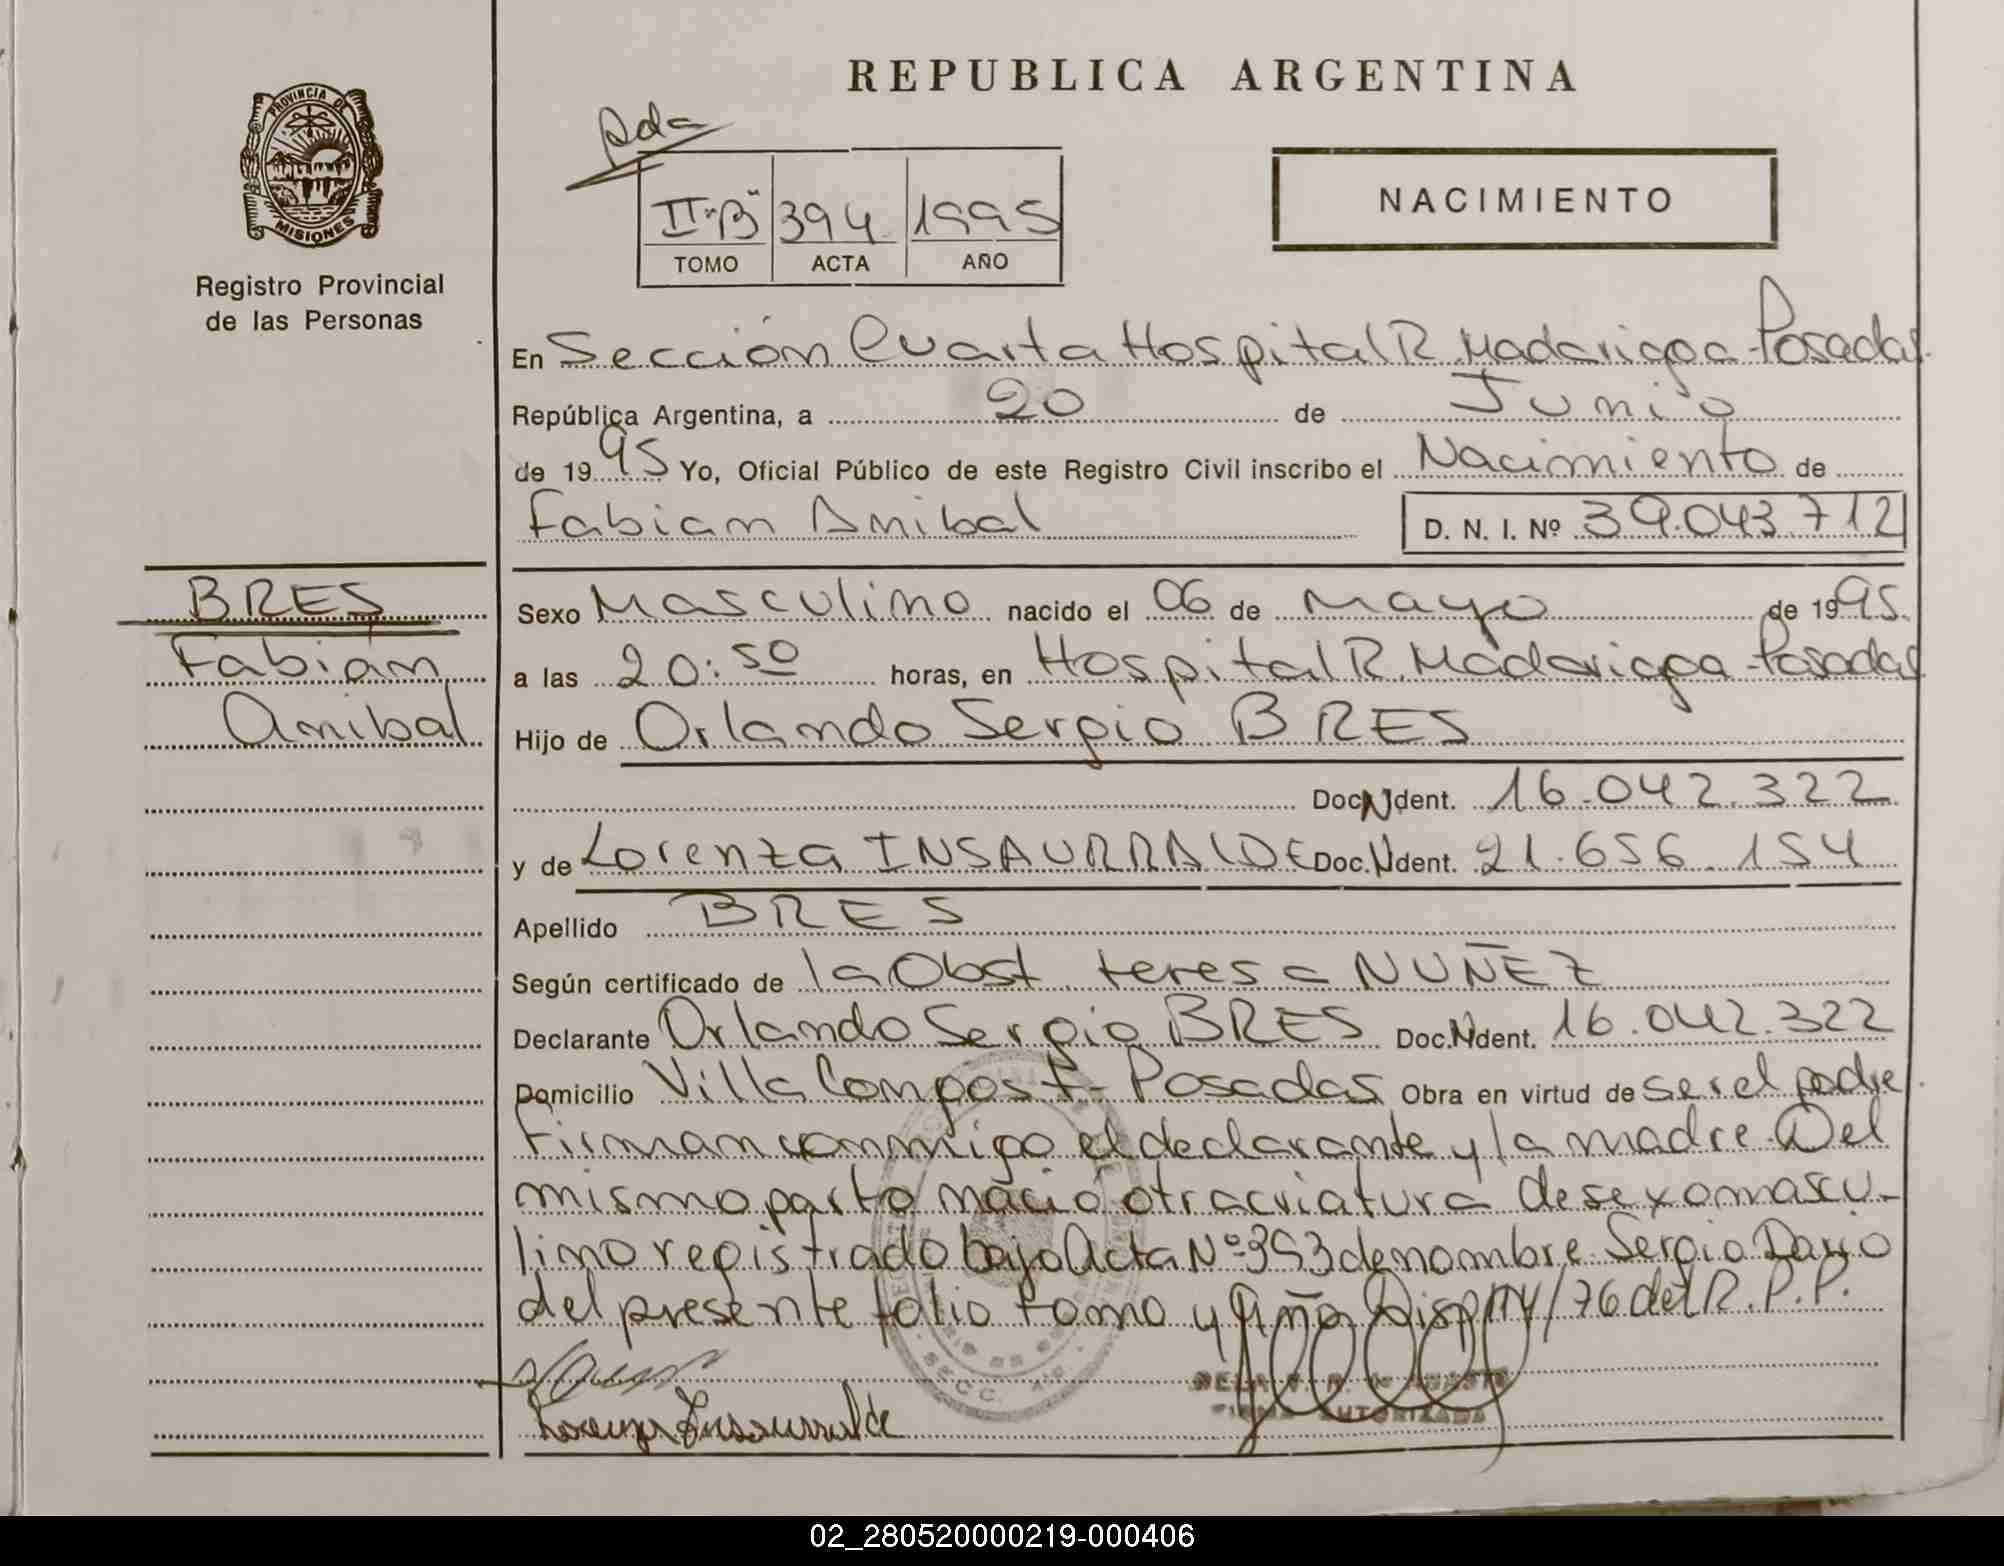 REPUBLICA ARGENTINA
PROVINCIA DE
MISIONES
Registro Provincial
de las Personas
Rda
II "B" 394 1995
TOMO ACTA AÑO
NACIMIENTO
En Sección Cuarta Hospital R. Madariaga - Posadas
República Argentina, a 20 de Junio
de 1995 Yo, Oficial Público de este Registro Civil inscribo el Nacimiento de
Fabian Anibal D. N. I. Nº 39.043.712
BRES
Fabian
Anibal
Sexo Masculino nacido el 06 de mayo de 1995.
a las 20:50 horas, en Hospital R. Madariaga - Posadas
Hijo de Orlando Sergio BRES
Doc. N. Ident. 16.042.322
y de Lorenza INSAURRALDE Doc. N. Ident. 21.656.154
Apellido BRES
Según certificado de la Obst teresa NUÑEZ
Declarante Orlando Sergio BRES Doc. N. Ident. 16.042.322
Domicilio Villa Compos F - Posadas Obra en virtud de ser el padre
Firman conmigo el declarante y la madre. Del
mismo parto nació otra criatura de sexo mascu-
lino registrado bajo Acta Nº 393 de nombre Sergio Dario
del presente folio tomo y Año Disp 114/76 del R.P.P.
SECC. 4ta.
FIRMA AUTORIZADA
Lorenza Insaurralde
02_280520000219-000406